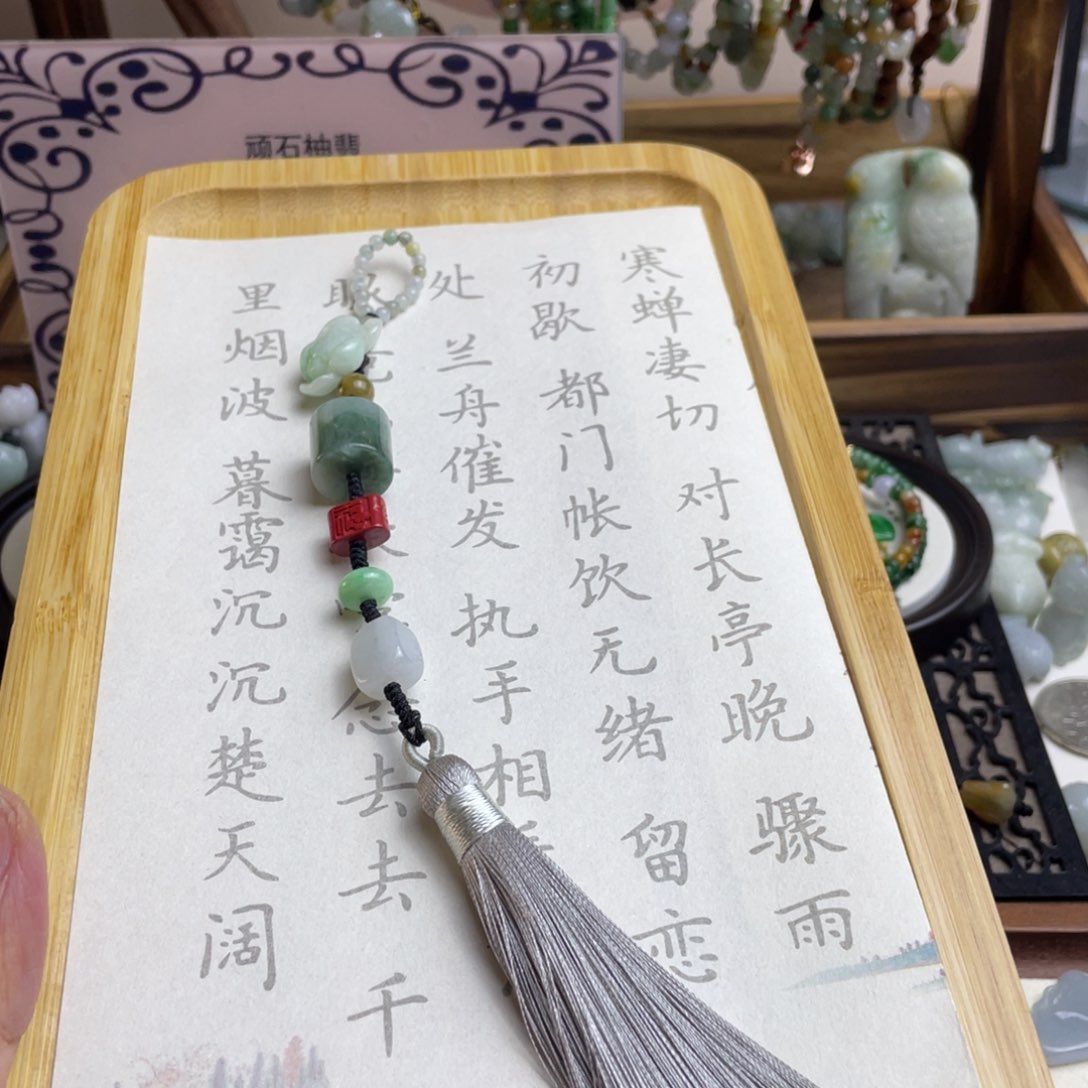 顽石柚翡
寒蝉凄切 对长亭晚 骤雨
初歇 都门帐饮无绪 留恋
处 兰舟催发 执手相
眼 念去去 千
里烟波 暮霭沉沉楚天阔